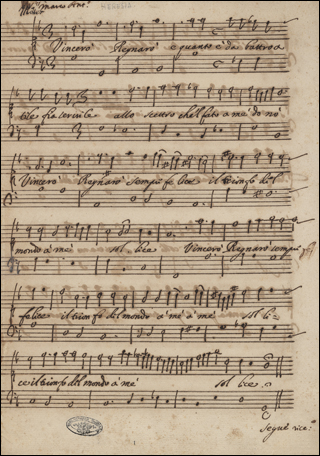 Vincerò Regnarò e quanto è da battro a
tile fia servile allo scettro che'l fato a me donò
Vincerò Regnarò sempre felice il trionfo del
mondo a me sol lice Vincerò Regnarò sempre
felice il trionfo del mondo a me a me sol li=
ce il trionfo del mondo a me sol lice.
Segue rice: